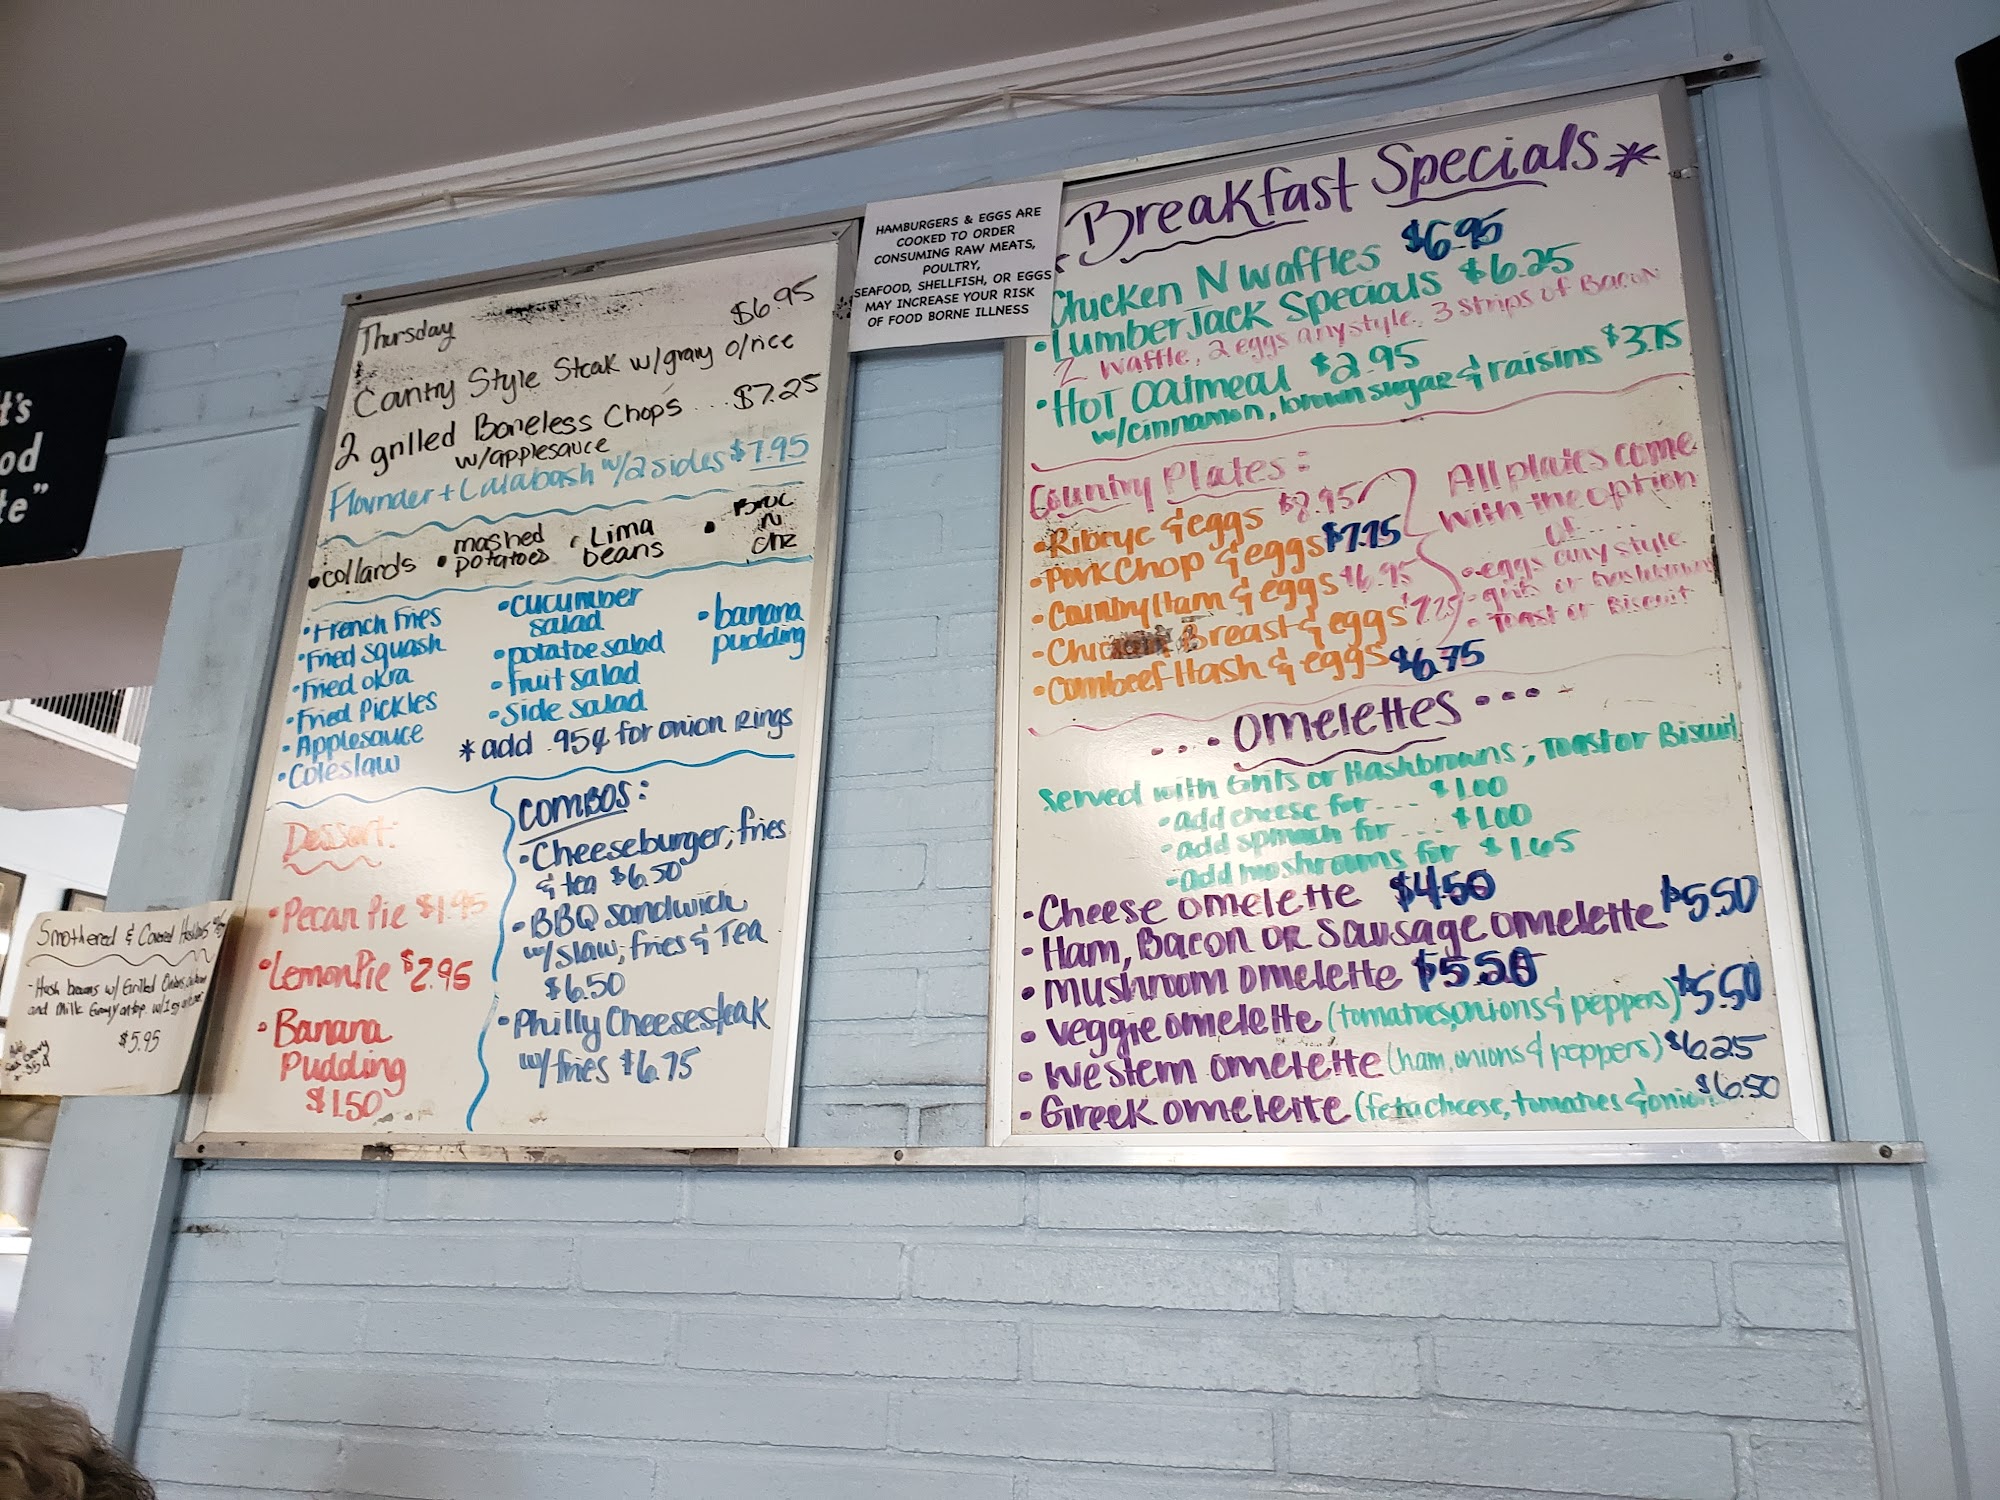 t's
od
te"
Smothered & Covered
- Hash browns w/ Grilled Onions,
and Milk Gravy on top w/
$5.95
Thursday
$6.95
Country Style Steak w/gravy o/rice
2 grilled Boneless Chops ... $7.25
w/applesauce
Flounder + Calabash w/2 sides $7.95
• collards
• mashed
potatoes
• Lima
beans
• Broc
N
Chz
• French Fries
• Fried Squash
• Fried Okra
• Fried Pickles
• Applesauce
• Coleslaw
• cucumber
salad
• potatoe salad
• fruit salad
• side salad
• banana
pudding
* add .95¢ for onion Rings
Dessert:
• Pecan Pie $1.95
• Lemon Pie $2.95
• Banana
Pudding
$1.50
COMBOS:
• Cheeseburger, fries
& tea $6.50
• BBQ sandwich
w/slaw, fries & Tea
$6.50
• Philly Cheesesteak
w/fries $6.75
HAMBURGERS & EGGS ARE
COOKED TO ORDER
CONSUMING RAW MEATS,
POULTRY,
SEAFOOD, SHELLFISH, OR EGGS
MAY INCREASE YOUR RISK
OF FOOD BORNE ILLNESS
* Breakfast Specials *
Chicken N Waffles $6.95
• LumberJack Specials $6.25
2 Waffle, 2 eggs any style, 3 strips of Bacon
• HOT Oatmeal $2.95
w/cinnamon, brown sugar & raisins $3.75
Country Plates:
• Ribeye & eggs $8.95
• Pork Chop & eggs $7.75
• Country Ham & eggs $6.95
• Chicken Breast & eggs $7.25
• Cornbeef Hash & eggs $6.75
All plates come
with the option
of.....
• eggs any style
• grits or hashbrowns
• Toast or Biscuit
... Omelettes ...
Served with Grits or Hashbrowns, Toast or Biscuit
• add cheese for ... $1.00
• add spinach for ... $1.00
• add mushrooms for $1.65
• Cheese omelette $4.50
• Ham, Bacon OR Sausage omelette $5.50
• Mushroom omelette $5.50
• Veggie omelette (tomatoes, onions & peppers) $5.50
• Western omelette (ham, onions & peppers) $6.25
• Greek omelette (feta cheese, tomatoes & onions $6.50